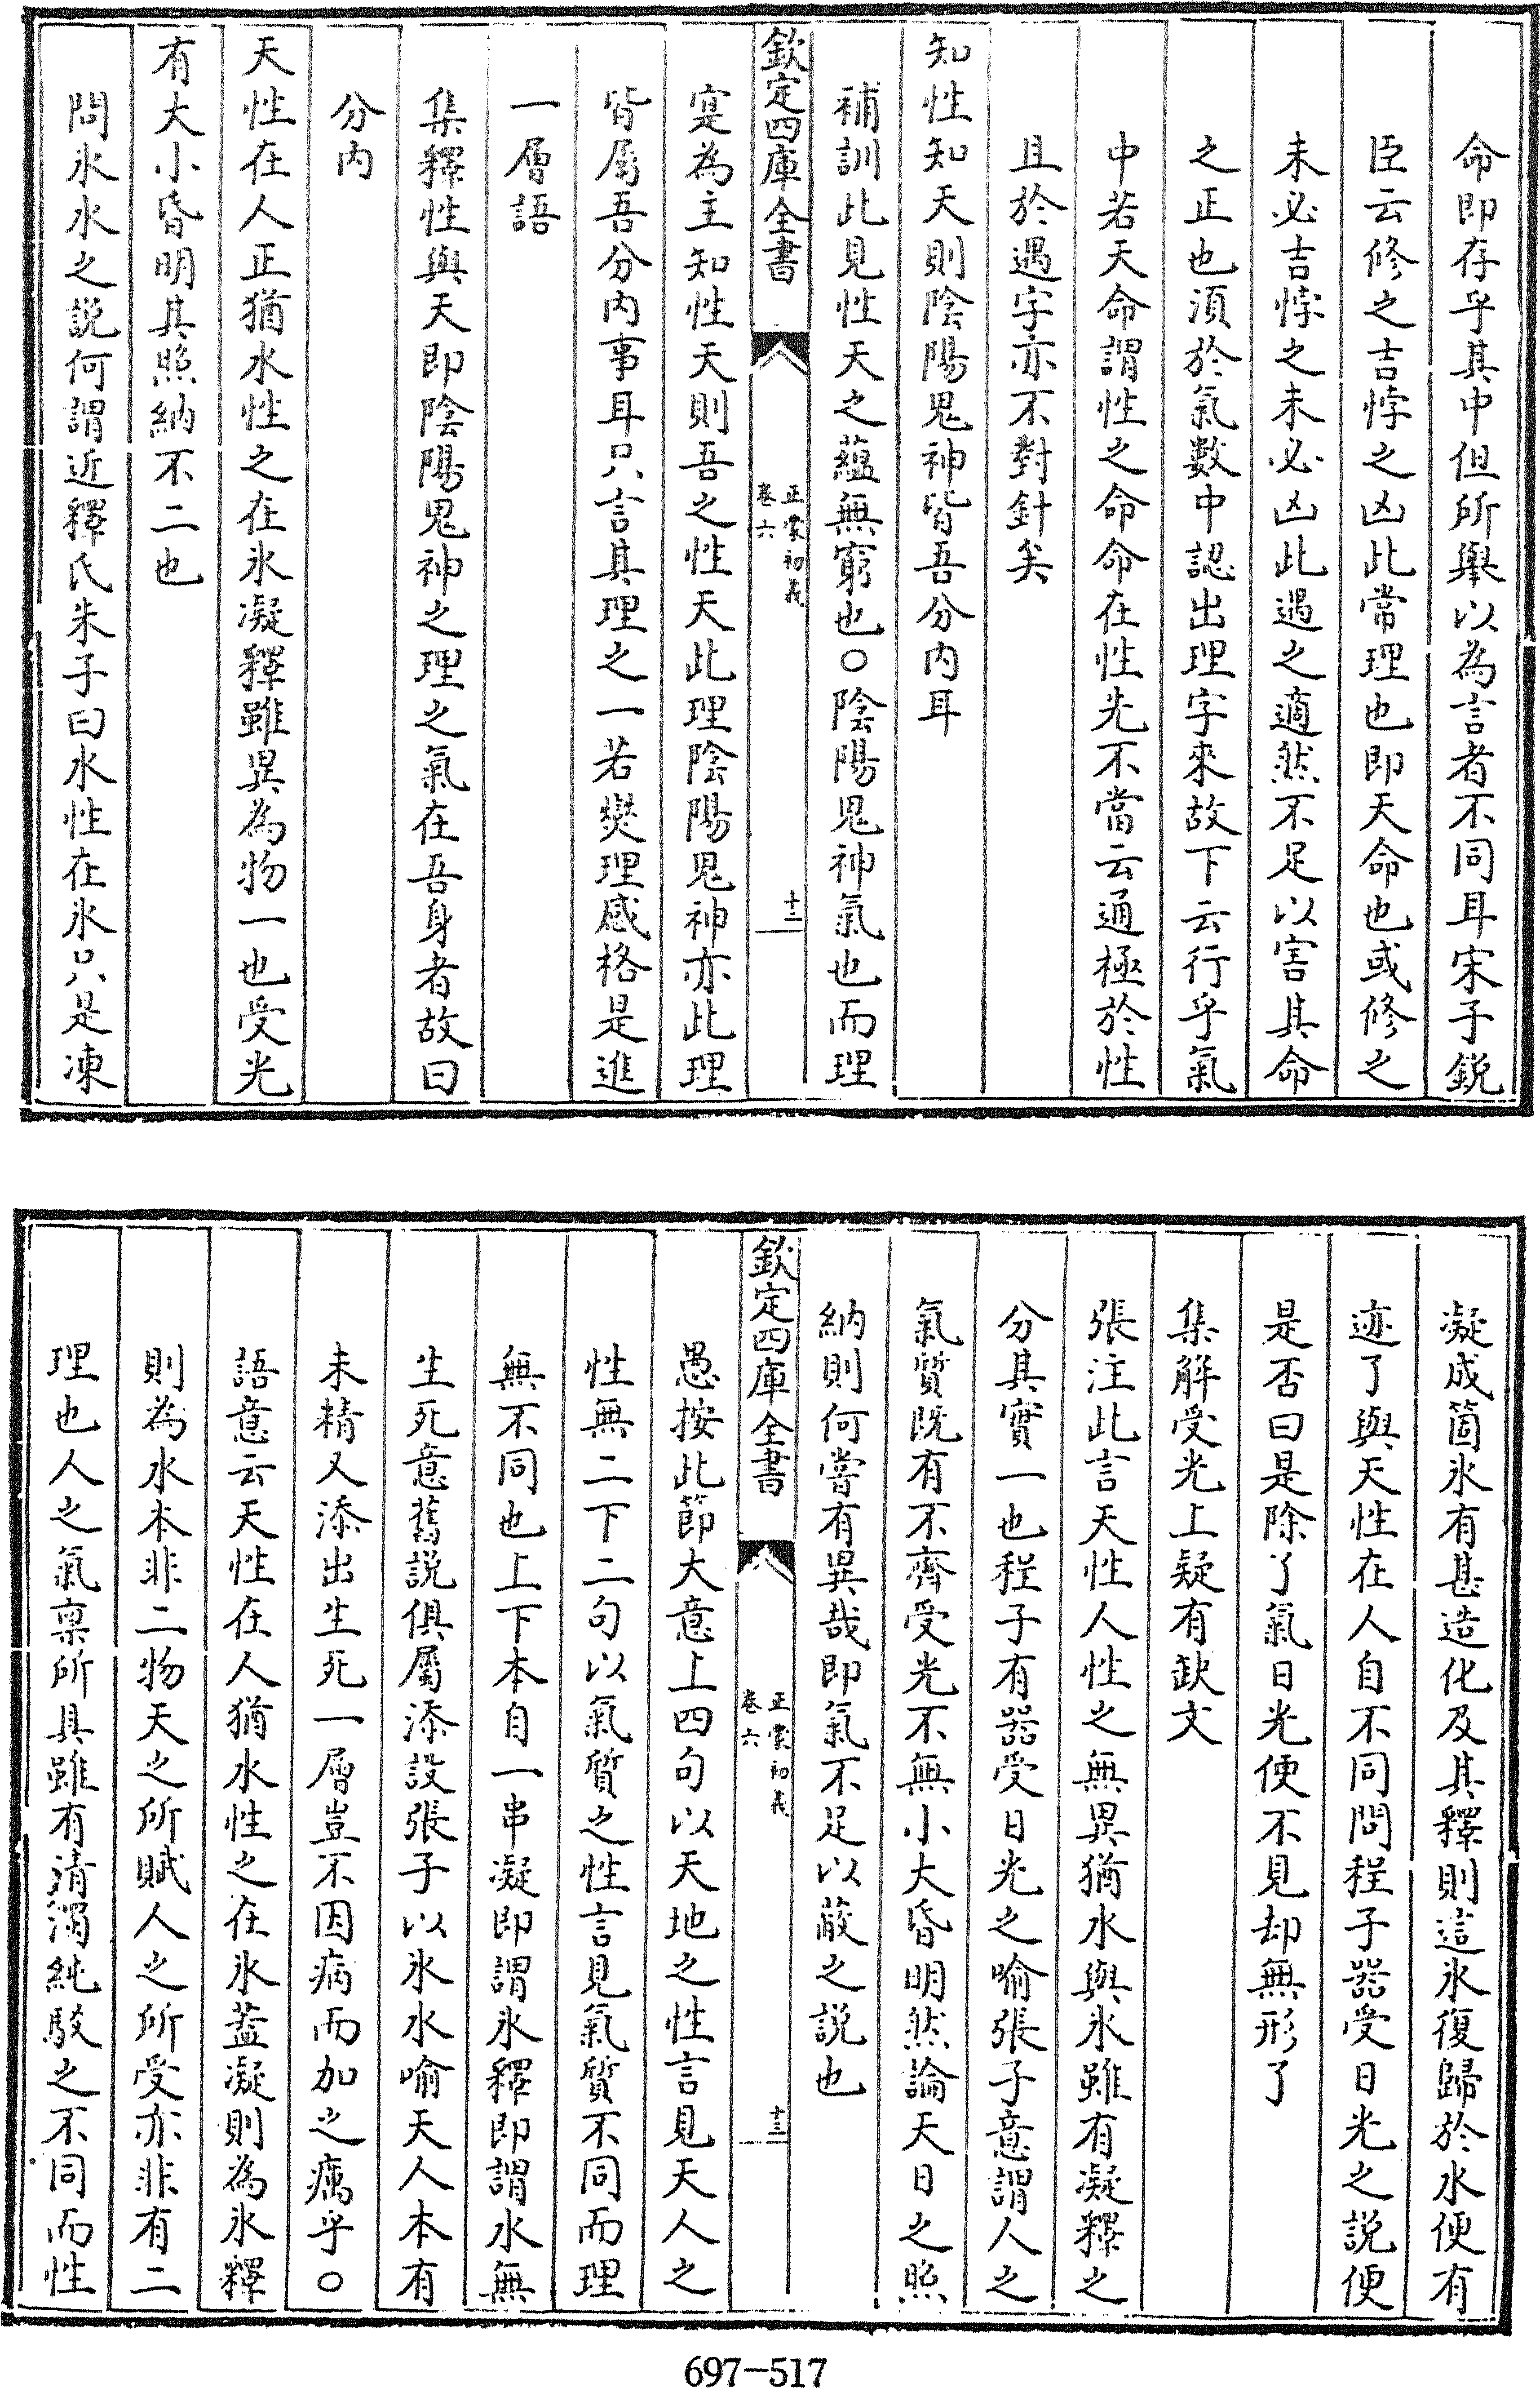 命即存乎其中但所舉以為言者不同耳宋子鋭
臣云修之吉悖之凶此常理也即天命也或修之
未必吉悖之未必凶此遇之適然不足以害其命
之正也須於氣數中認出理字來故下云行乎氣
中若天命謂性之命命在性先不當云通極於性
且於遇字亦不對針矣
知性知天則陰陽鬼神皆吾分内耳
補訓此見性天之蘊無窮也○陰陽鬼神氣也而理
欽定四庫全書
正蒙初義
卷六
十二
寔為主知性天則吾之性天此理陰陽鬼神亦此理
皆屬吾分内事耳只言其理之一若爕理感格是進
一層語
集釋性與天即陰陽鬼神之理之氣在吾身者故曰
分内
天性在人正猶水性之在氷凝釋雖異為物一也受光
有大小昏明其照納不二也
問氷水之説何謂近釋氏朱子曰水性在氷只是凍
凝成箇氷有甚造化及其釋則這氷復歸於水便有
迹了與天性在人自不同問程子器受日光之説便
是否曰是除了氣日光便不見却無形了
集解受光上疑有缺文
張注此言天性人性之無異猶水與氷雖有凝釋之
分其實一也程子有器受日光之喻張子意謂人之
氣質既有不齊受光不無小大昏明然論天日之照
納則何嘗有異哉即氣不足以蔽之説也
欽定四庫全書
正蒙初義
卷六
十三
愚按此節大意上四句以天地之性言見天人之
性無二下二句以氣質之性言見氣質不同而理
無不同也上下本自一串凝即謂氷釋即謂水無
生死意舊説俱屬添設張子以氷水喻天人本有
未精又添出生死一層豈不因病而加之癘乎○
語意云天性在人猶水性之在氷蓋凝則為氷釋
則為水本非二物天之所賦人之所受亦非有二
理也人之氣稟所具雖有清濁純駁之不同而性
697-517